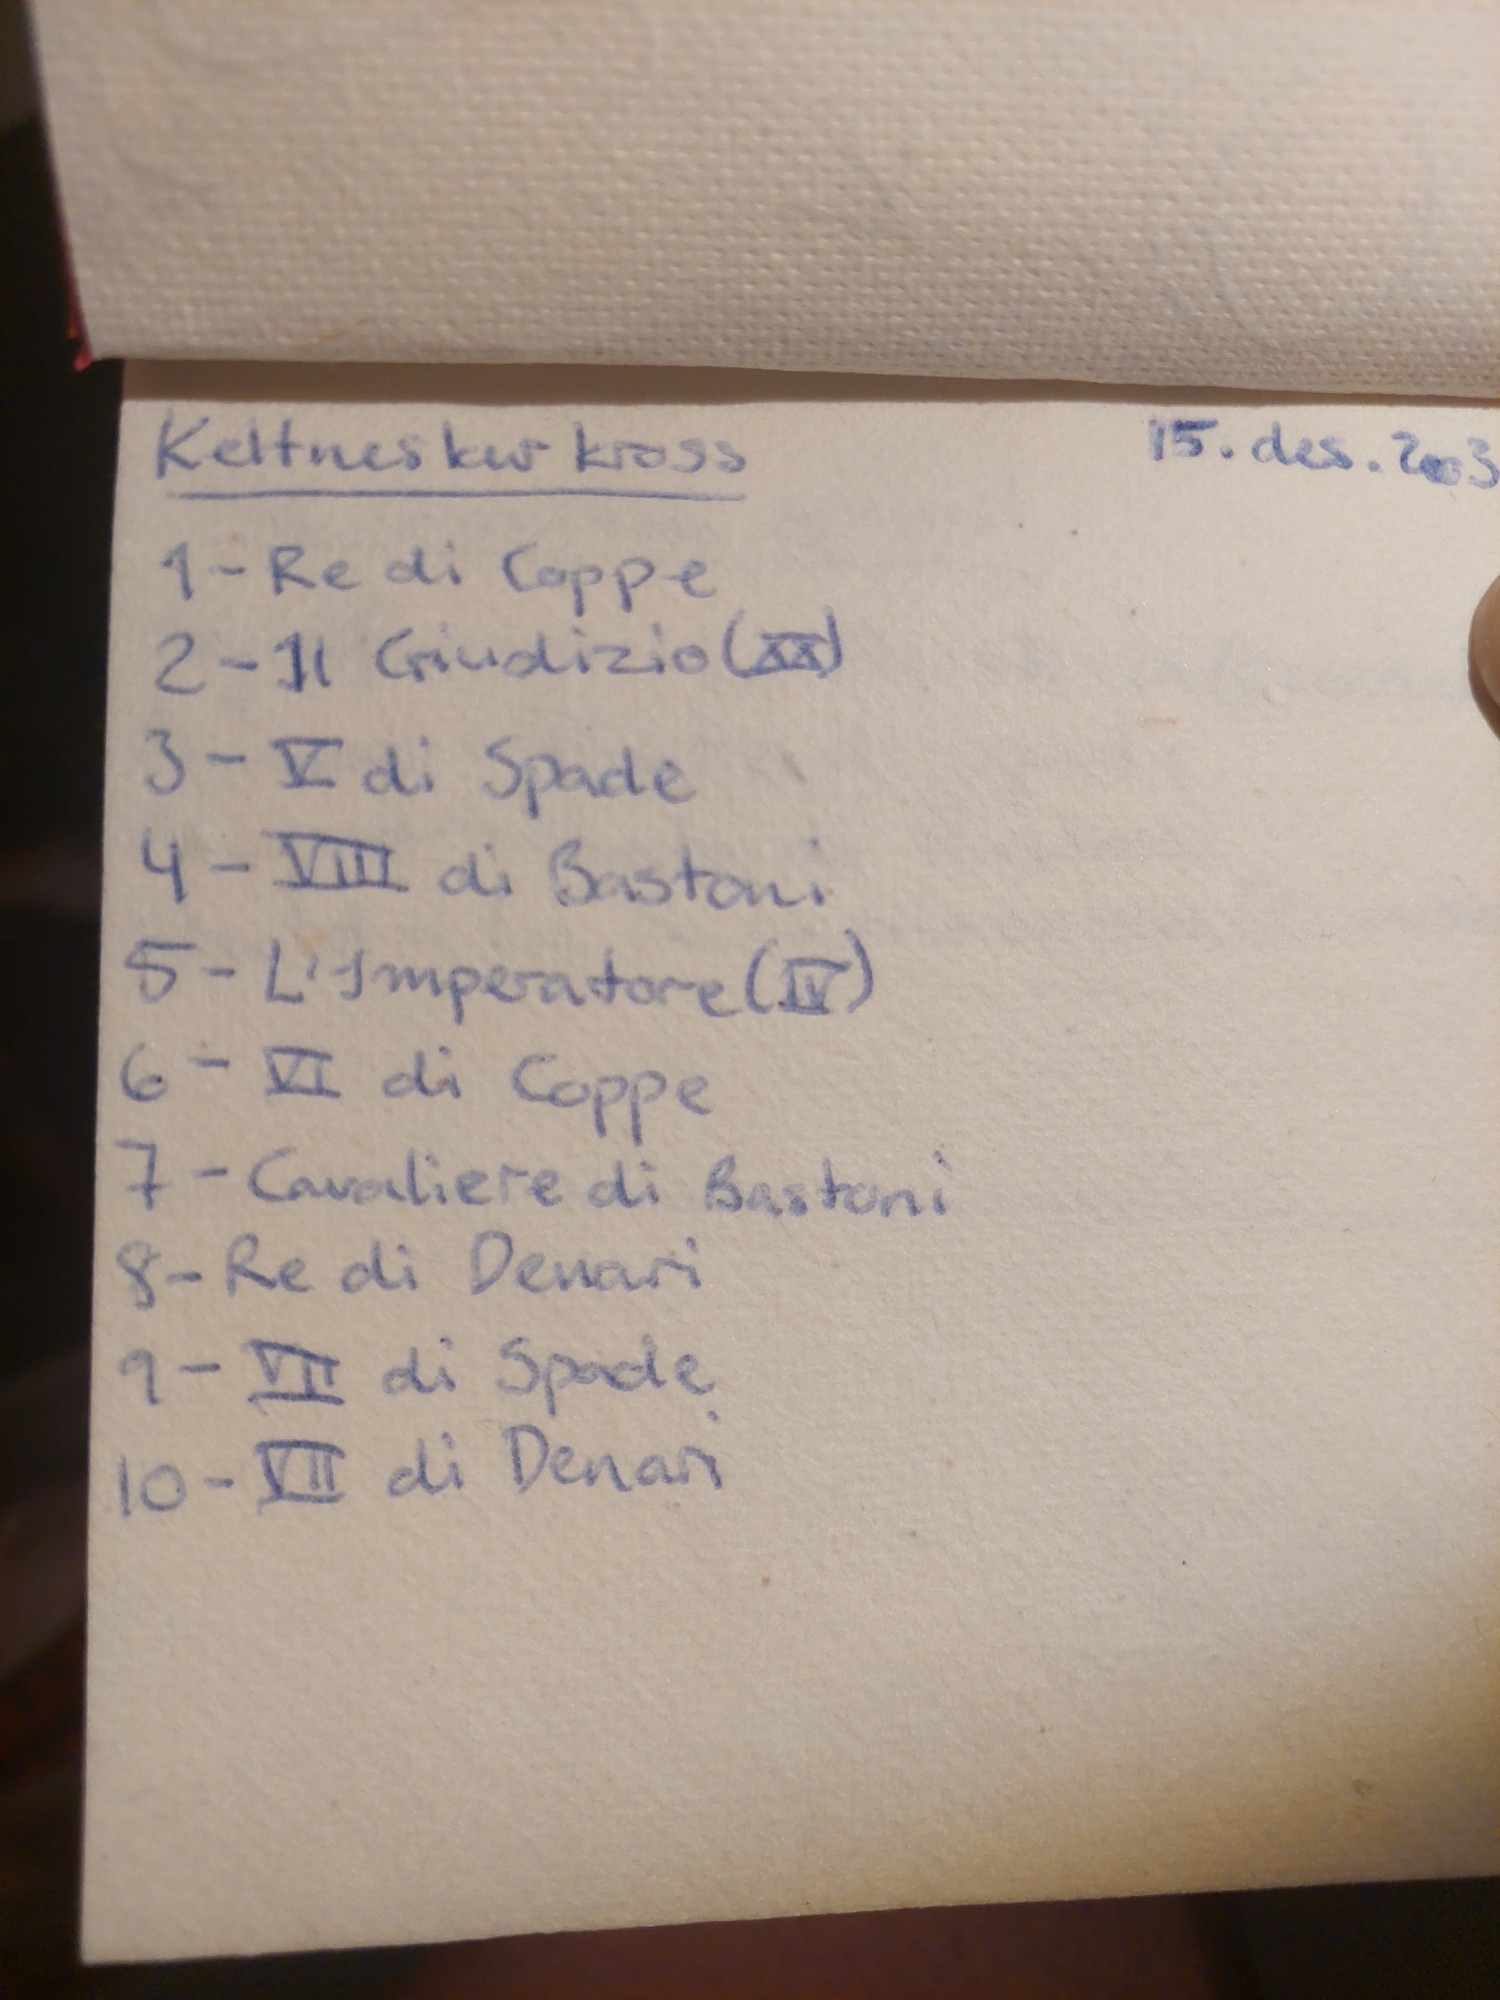 Keltneskur kross
15. des. 2003
1 - Re di Coppe
2 - Il Giudizio (XX)
3 - V di Spade
4 - VIII di Bastoni
5 - L'Imperatore (IV)
6 - VI di Coppe
7 - Cavaliere di Bastoni
8 - Re di Denari
9 - VII di Spade
10 - VII di Denari